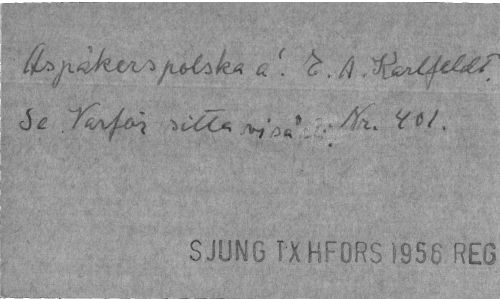 Aspåkerspolska a'. E. A. Karlfeldt.
Se Varför sitta vi så Nr. 401.
SJUNG TX HFORS 1956 REG